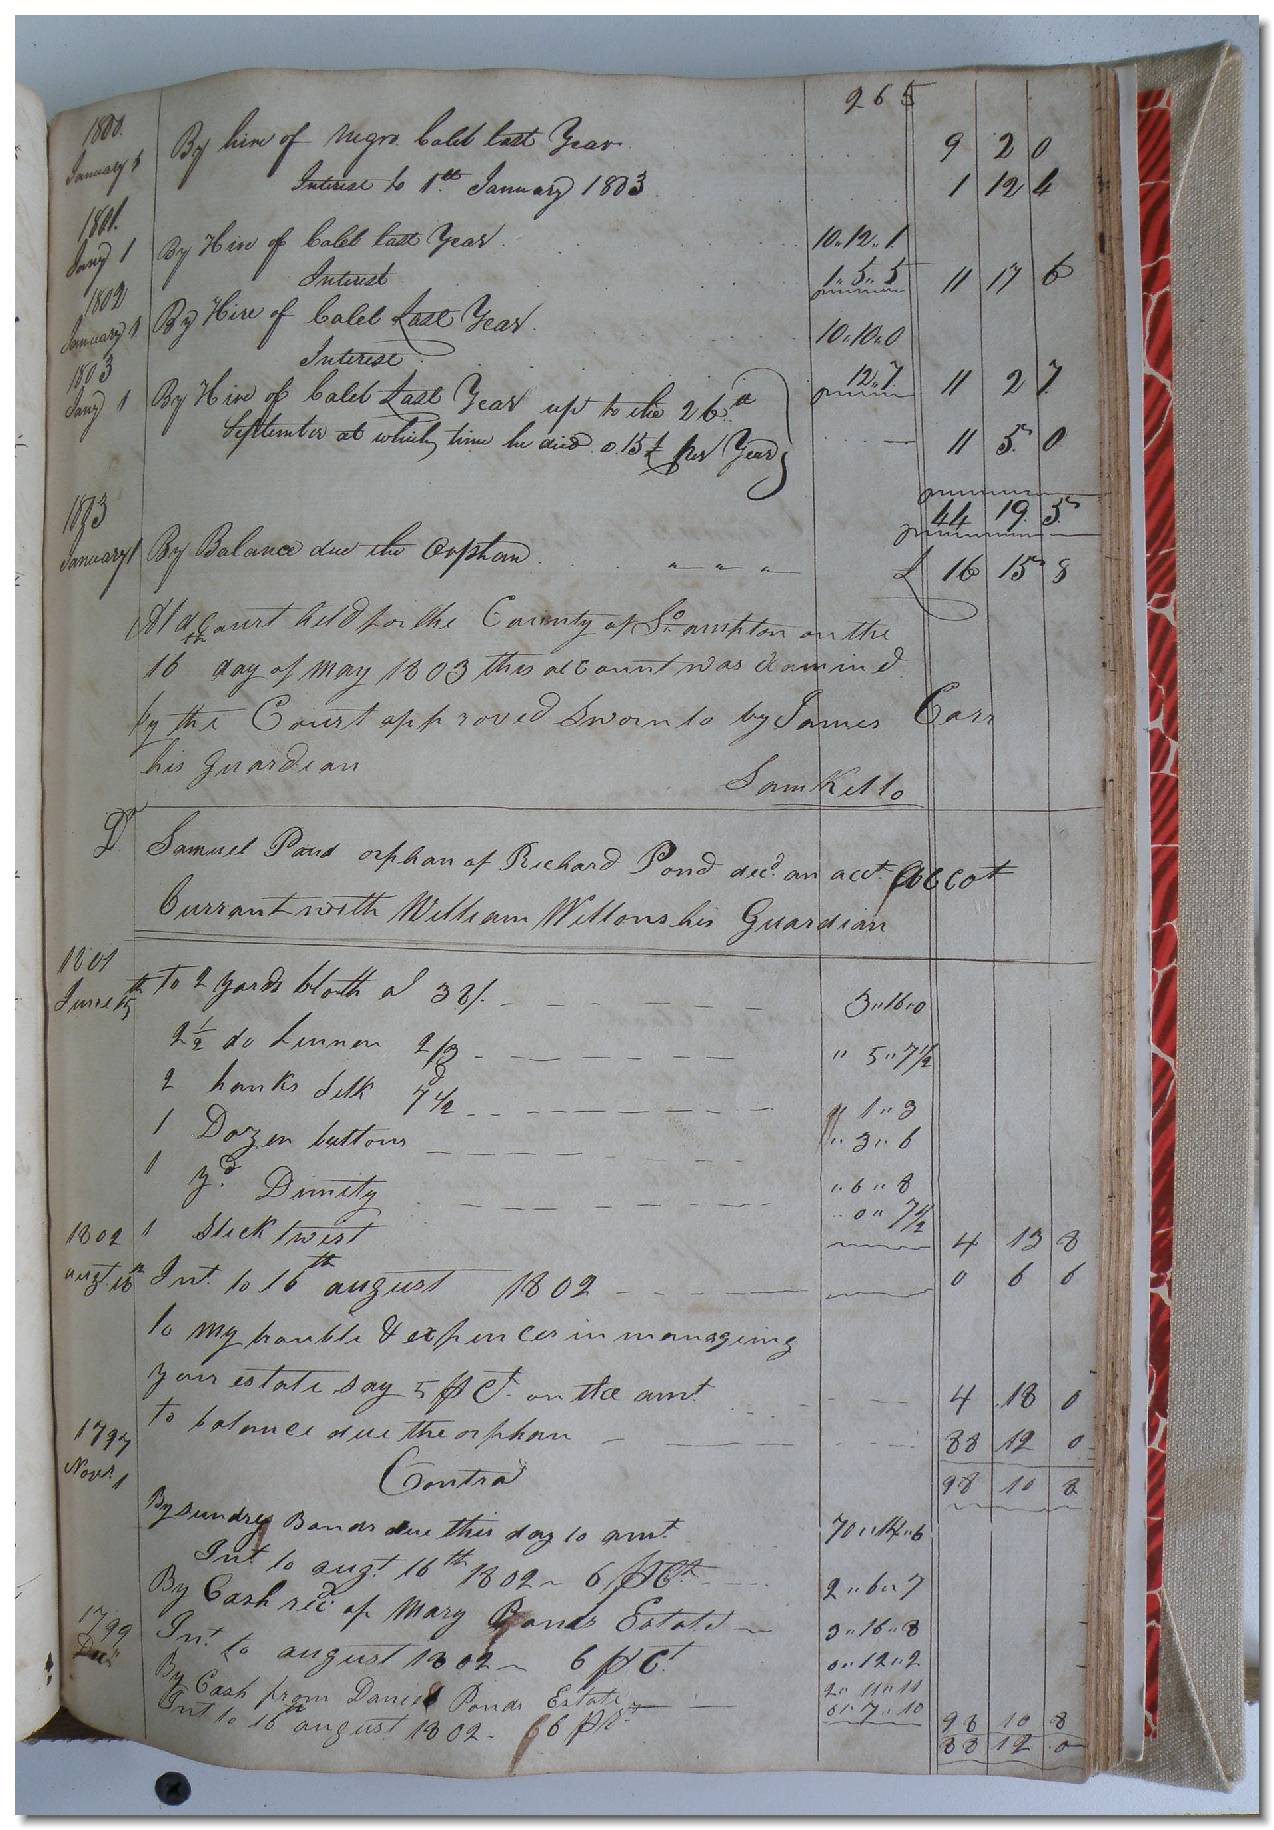 265
1800
January 1 By hire of Negro Caleb last Year 9 2 0
Interest to 1st January 1803 1 12 4
1801
Jany 1 By Hire of Caleb last Year 10..12..1
Interest 1..5..5 11 17 6
1802
January 1 By Hire of Caleb Last Year 10..10..0
Interest 12..7 11 2 7
1803
Jany 1 By Hire of Caleb Last Year up to the 26th
September at which time he died @ 15£ per Year 11 5 0
44 19 5
1803
January 1 By Balance due the Orphan £ 16 15 8
At a Court held for the County of So.ampton on the
16th day of May 1803 this account was examined
by the Court approved Sworn to by James Carr
his guardian
Sam Kello
Dr Samuel Pond orphan of Richard Pond decd. an acct. accot
Currant with William Wellons his Guardian
1801
June 15th To 2 yards Cloth at 38/. 3..16..0
2 1/2 do Linnen 2/3 " 5..7 1/2
2 hanks Silk 7 1/2d " 1..3
1 Dozen buttons " 3..6
1 yd. Dimity " 6..8
1802 1 Stick twist 0..7 1/2 4 13 8
augt. 16th Int. to 16th august 1802 0 6 6
To my trouble & expences in managing
your estate say 5 pCt. on the amt. 4 18 0
To balance due the orphan 88 12 0
1797 Contra 98 10 2
Novr. 1 By sundry Bonds due this day to amt. 70..14..6
Int. to augt. 16th 1802 6 pCt. 2..6..7
By Cash recd. of Mary Ponds Estate 3..16..8
1799 Int. to august 1802 6 pCt. 0..12..2
Decr. By Cash from Daniel Ponds Estate 2..11..11
Int to 16th august 1802 6 pCt. 0..7..10 98 10 8
88 12 0